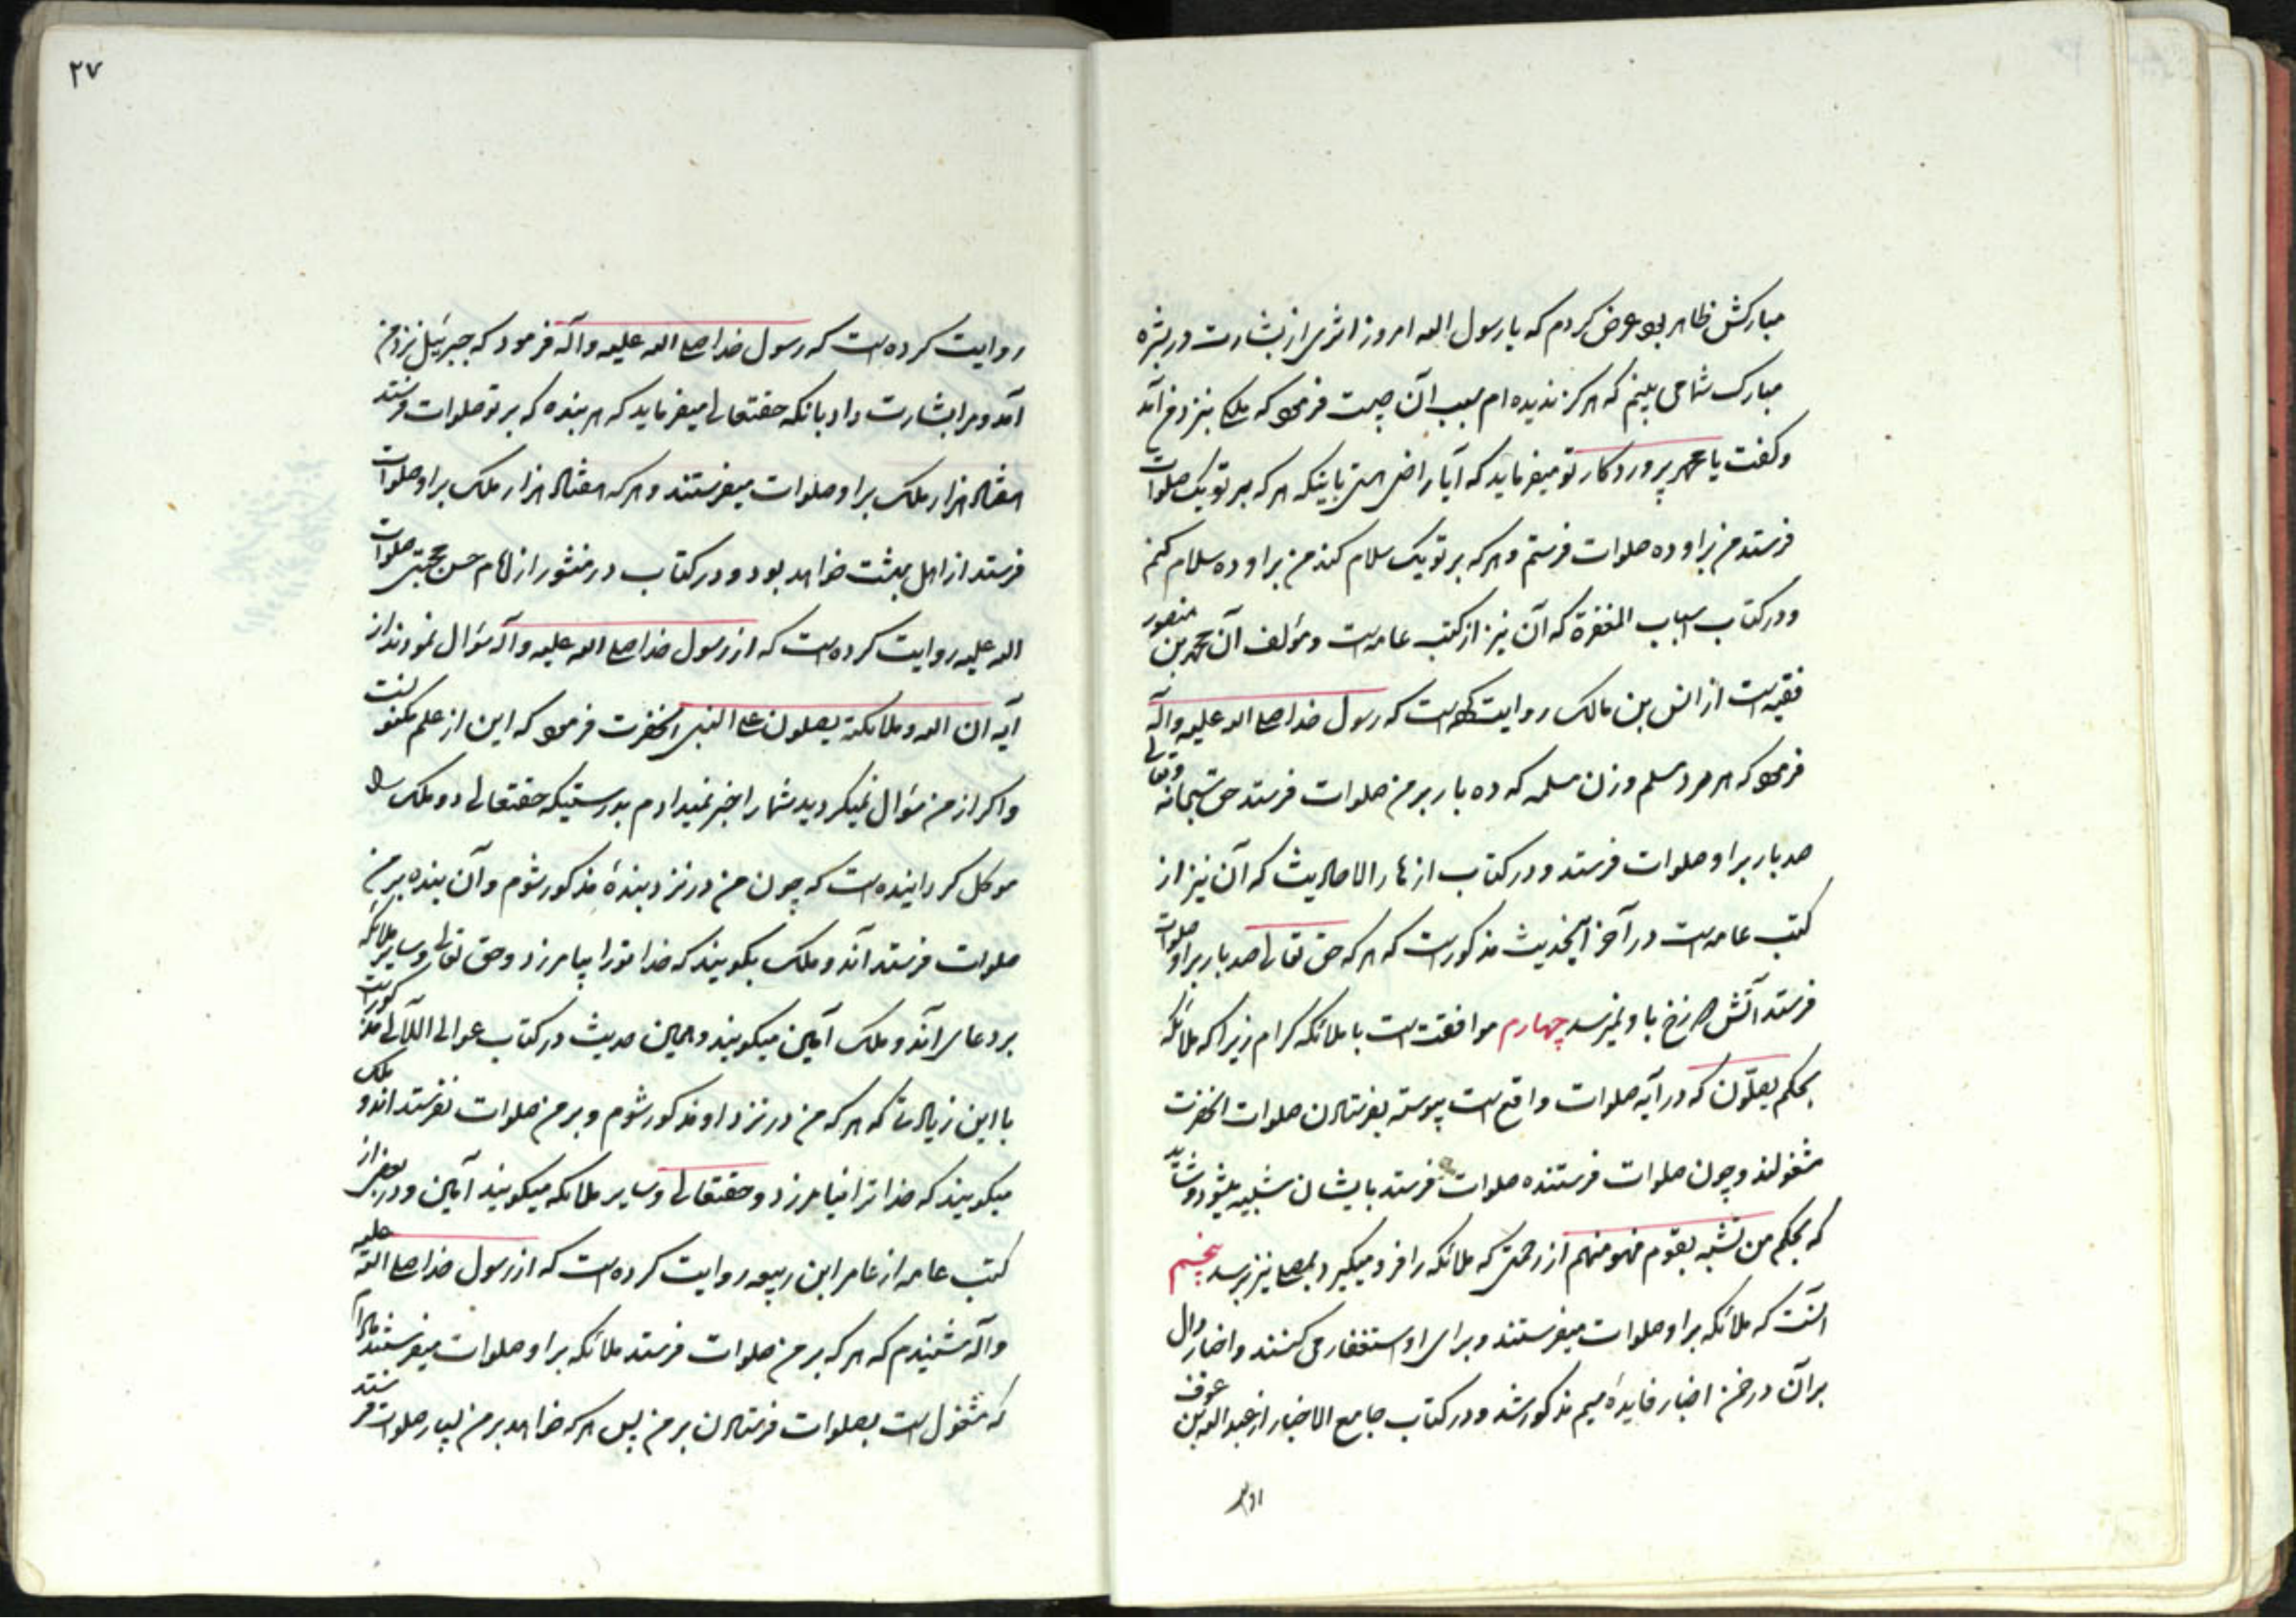 مبارکش ظاهر بود عرض کردم که یا رسول الله امروز اثری از بشارت در بشره
مبارک شما می بینم که هرگز ندیده ام سبب آن چیست فرمود که ملکی بنزد من آمد
و گفت یا محمد پروردگار تو میفرماید که آیا راضی هستی باینکه هر که بر تو یک صلوات
فرستد من بر او ده صلوات فرستم و هر که بر تو یک سلام کند من بر او ده سلام کنم
و در کتاب اسباب المغفرة که آن نیز از کتب عامه است و مؤلف آن محمد بن منصور
فقیه است از انس بن مالک روایت کرده است که رسول خدا صلی الله علیه وآله
فرمود که هر مرد مسلم و زن مسلمه که ده بار بر من صلوات فرستد حق سبحانه وتعالی
صد بار بر او صلوات فرستد و در کتاب ازهار الاحادیث که آن نیز از
کتب عامه است در آخر اینحدیث مذکور است که هر که حق تعالی صد بار بر او صلوات
فرستد آتش دوزخ باو نمیرسد چهارم موافقت است با ملائکه کرام زیرا که ملائکه
بحکم یصلّون که در آیه صلوات واقع است پیوسته بفرستادن صلوات آنحضرت
مشغولند و چون صلوات فرستنده صلوات فرستد بایشان شبیه میشود و شاید
که بحکم من تشبه بقوم فهو منهم از رحمتی که ملائکه را فرو میگیرد بمصلی نیز برسد پنجم
آنست که ملائکه بر او صلوات میفرستند و برای او استغفار می کنند و اخبار دال
بر آن در ضمن اخبار فایده میم مذکور شد و در کتاب جامع الاخبار از عبدالله بن عوف
روایت
روایت کرده است که رسول خدا صلی الله علیه وآله فرمود که جبرئیل نزد من
آمد و مرا بشارت داد بانکه حقتعالی میفرماید که هر بنده که بر تو صلوات فرستد
هفتاد هزار ملک بر او صلوات میفرستند و هر که هفتاد هزار ملک بر او صلوات
فرستد از اهل بهشت خواهد بود و در کتاب در منثور از امام حسن مجتبی صلوات
الله علیه روایت کرده است که از رسول خدا صلی الله علیه وآله سؤال نمودند از
آیه ان الله وملائکته یصلون علی النبی آنحضرت فرمود که این از علم مکنونست
و اکر از من سؤال نمیکردید شما را خبر نمیدادم بدرستیکه حقتعالی دو ملک را
موکل کردانیده است که چون من در نزد بندهٔ مذکور شوم و آن بنده بر من
صلوات فرستد آندو ملک بگویند که خدا تو را بیامرزد و حق تعالی وسایر ملائکه
بر دعای آندو ملک آمین میکویند و همین حدیث در کتاب عوالی اللآلی مذکور است
با این زیادتی که هر که من در نزد او مذکور شوم و بر من صلوات نفرستد اندو ملک
میکویند که خدا ترا نیامرزد و حقتعالی وسایر ملائکه میکویند آمین و در بعضی از
کتب عامه از عامر ابن ربیعه روایت کرده است که از رسول خدا صلی الله علیه
وآله شنیدم که هر که بر من صلوات فرستد ملائکه بر او صلوات میفرستند مادام
که مشغول است بصلوات فرستادن بر من پس هر که خواهد بر من بسیار صلوات فرستد
۲۷